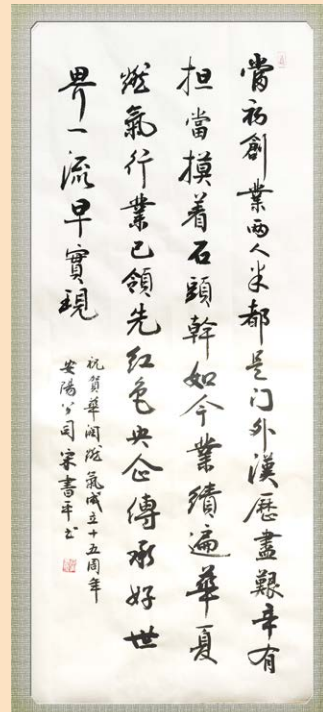 當初創業兩人半都是门外漢歷盡艱辛有
担當摸着石頭幹如今業績遍華夏
燃氣行業已領先红色央企傳承好世
界一流早實現
祝賀華润燃氣成立十五周年
安陽公司宋書平书